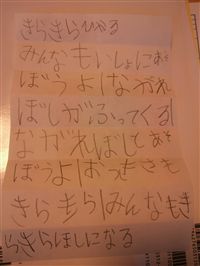 きらきらひかる
みんなもいしょにあそ
ぼうよ|ながれ
ぼしがふってくる|
ながれぼしとあそ
ぼうよ|おつきさも
きらきら|みんなもき
らきらほしになる